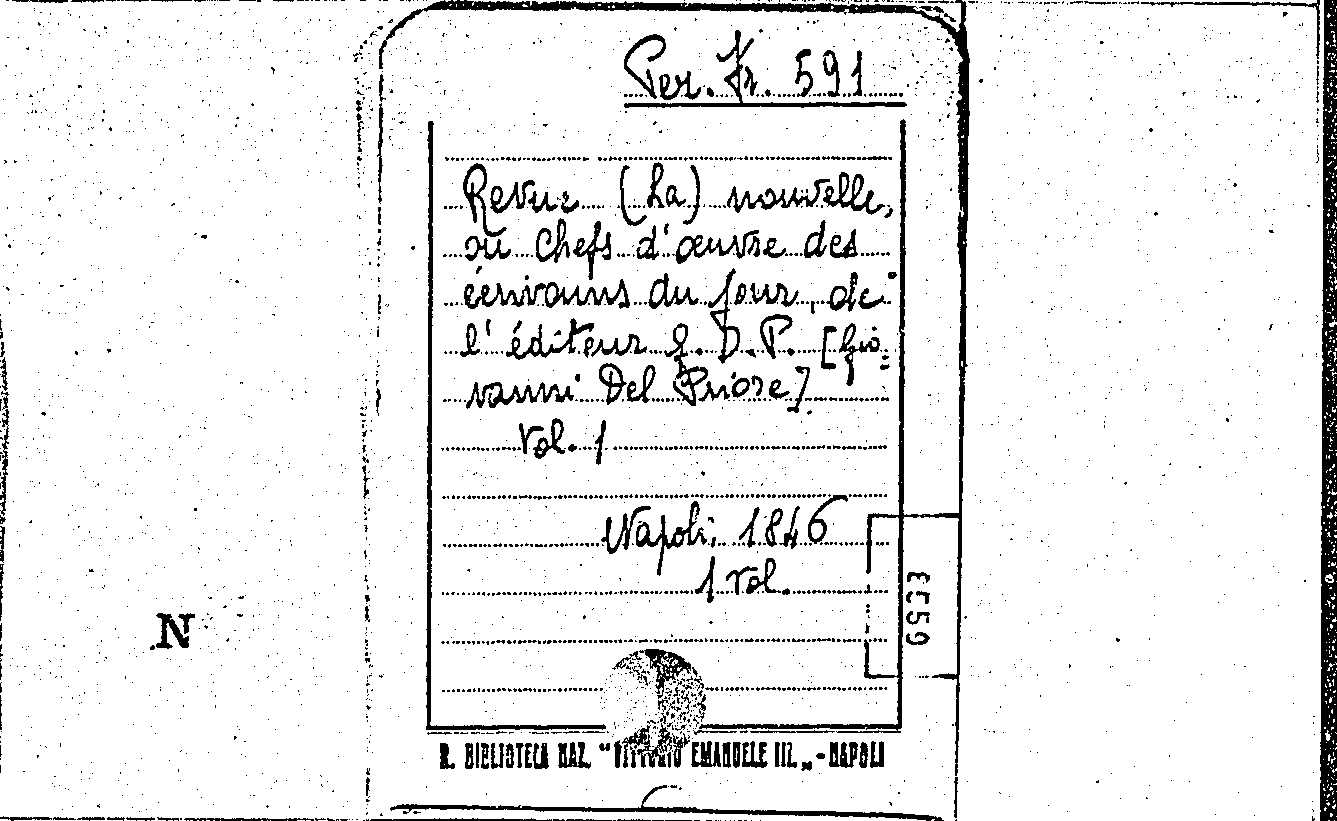 Per. Fr. 591
Revue (La) nouvelle,
ou chefs d'œuvre des
écrivains du jour, de
l'éditeur G. D. P. [Gio=
vanni Del Priore]
Vol. 1
Napoli, 1846
1 vol.
N
R. BIBLIOTECA NAZ. "VITTORIO EMANUELE III„ - NAPOLI